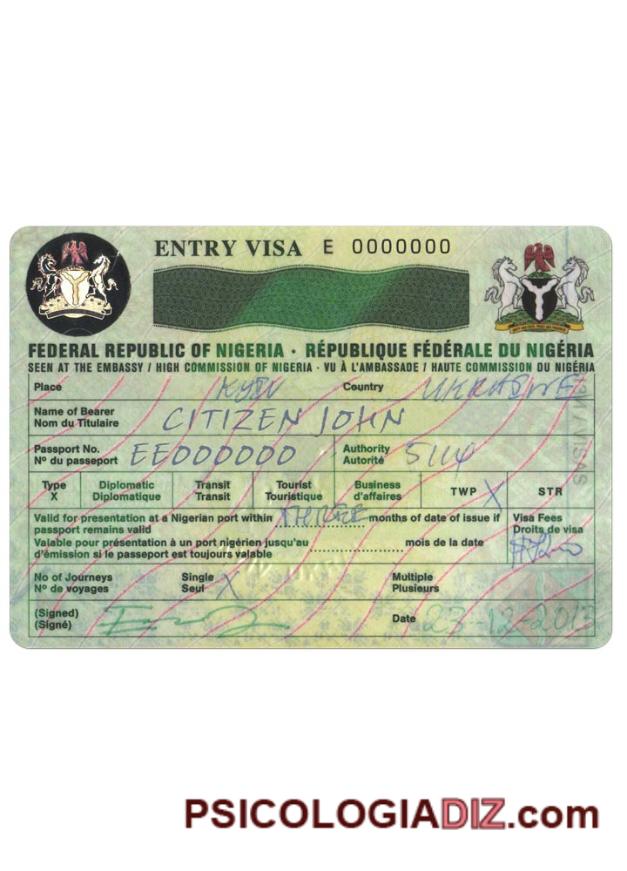 ENTRY VISA E 0000000
FEDERAL REPUBLIC OF NIGERIA · RÉPUBLIQUE FÉDÉRALE DU NIGÉRIA
SEEN AT THE EMBASSY / HIGH COMMISSION OF NIGERIA · VU À L'AMBASSADE / HAUTE COMMISSION DU NIGÉRIA
Place KYIV Country UKRAINE
Name of Bearer
Nom du Titulaire CITIZEN JOHN
Passport No.
Nº du passeport EE000000
Authority
Autorité
Type
X
Diplomatic
Diplomatique
Transit
Transit
Tourist
Touristique
Business
d'affaires
TWP X
STR
Valid for presentation at a Nigerian port within THREE months of date of issue if
passport remains valid
Valable pour présentation à un port nigérien jusqu'au mois de la date
d'émission si le passeport est toujours valable
Visa Fees
Droits de visa
No of Journeys
Nº de voyages
Single
Seul X
Multiple
Plusieurs
(Signed)
(Signé)
Date 23-12-2013
VISAS
PSICOLOGIADIZ.com